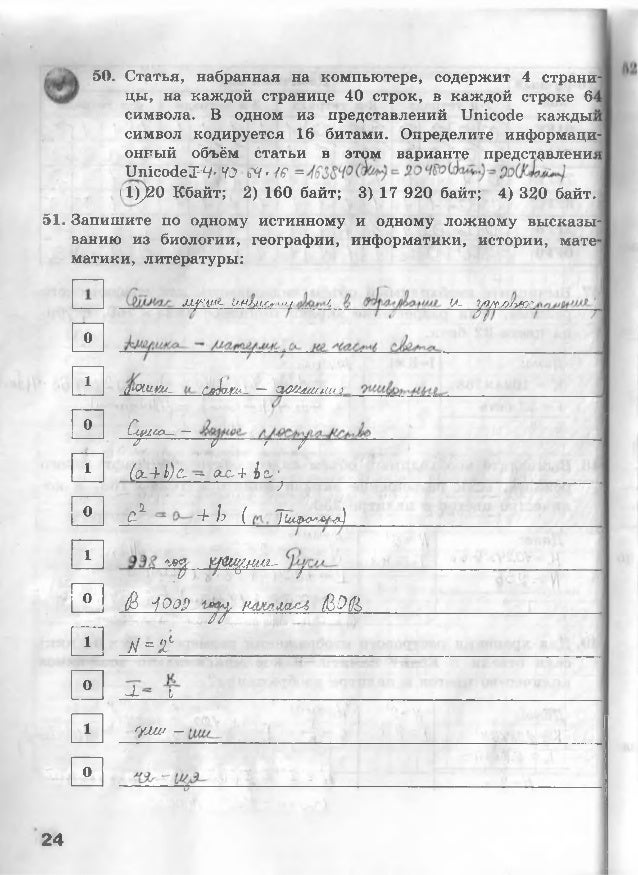 50. Статья, набранная на компьютере, содержит 4 страни-
цы, на каждой странице 40 строк, в каждой строке 64
символа. В одном из представлений Unicode каждый
символ кодируется 16 битами. Определите информаци-
онный объём статьи в этом варианте представления
Unicode. I=4·40·64·16 =163840(бит)= 20480(байт)=20(Кбайт)
1) 20 Кбайт; 2) 160 байт; 3) 17 920 байт; 4) 320 байт.
51. Запишите по одному истинному и одному ложному высказы-
ванию из биологии, географии, информатики, истории, мате-
матики, литературы:
1 Сейчас лучше инвестировать в образование и здравоохранение;
0 Америка – материк, а не часть света.
1 Кошки и собаки – домашние животные.
0 Суша – водное пространство
1 (a+b)c = ac+bc;
0 c² = a + b (т. Пифагора)
1 998 год крещение Руси
0 В 1009 году началась ВОВ
1 N = 2ⁱ
0 I = K/i
1 жи – ши
0 чя – щя
24